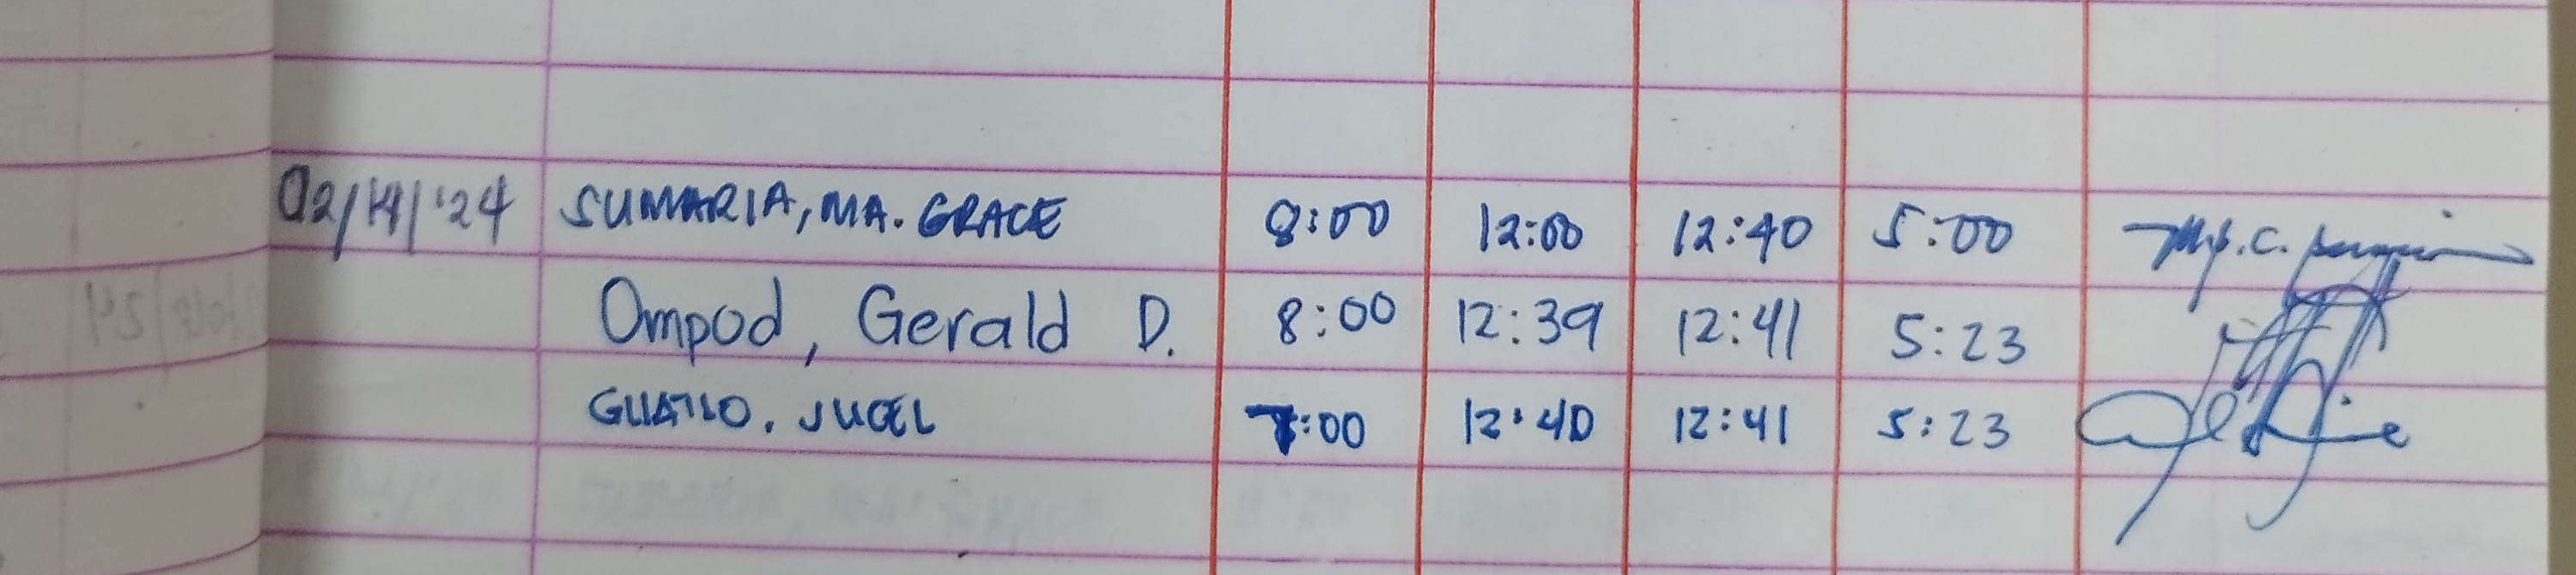 02/14/'24 SUMARIA, MA. GRACE 8:00 12:00 12:40 5:00
Ompod, Gerald D. 8:00 12:39 12:41 5:23
JUCEL 7:00 12:40 12:41 5:23